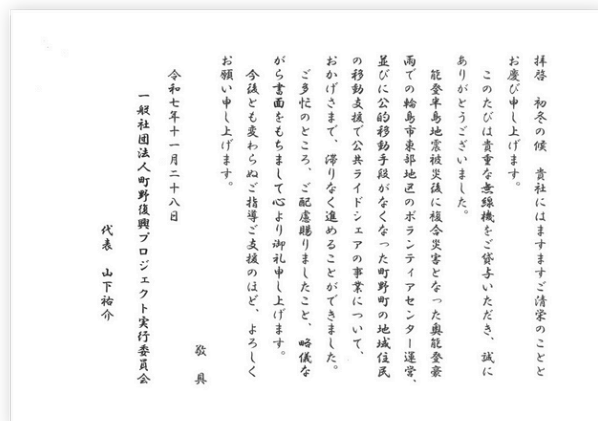 拝啓　初冬の候　貴社にはますますご清栄のことと
お慶び申し上げます。
このたびは貴重な無線機をご貸与いただき、誠に
ありがとうございました。
能登半島地震被災後に複合災害となった奥能登豪
雨での輪島市東部地区のボランティアセンター運営、
並びに公的移動手段がなくなった町野町の地域住民
の移動支援で公共ライドシェアの事業について、
おかげさまで、滞りなく進めることができました。
ご多忙のところ、ご配慮賜りましたこと、略儀な
がら書面をもちまして心より御礼申し上げます。
今後とも変わらぬご指導ご支援のほど、よろしく
お願い申し上げます。
敬具
令和七年十一月二十八日
一般社団法人町野復興プロジェクト実行委員会
代表　山下祐介